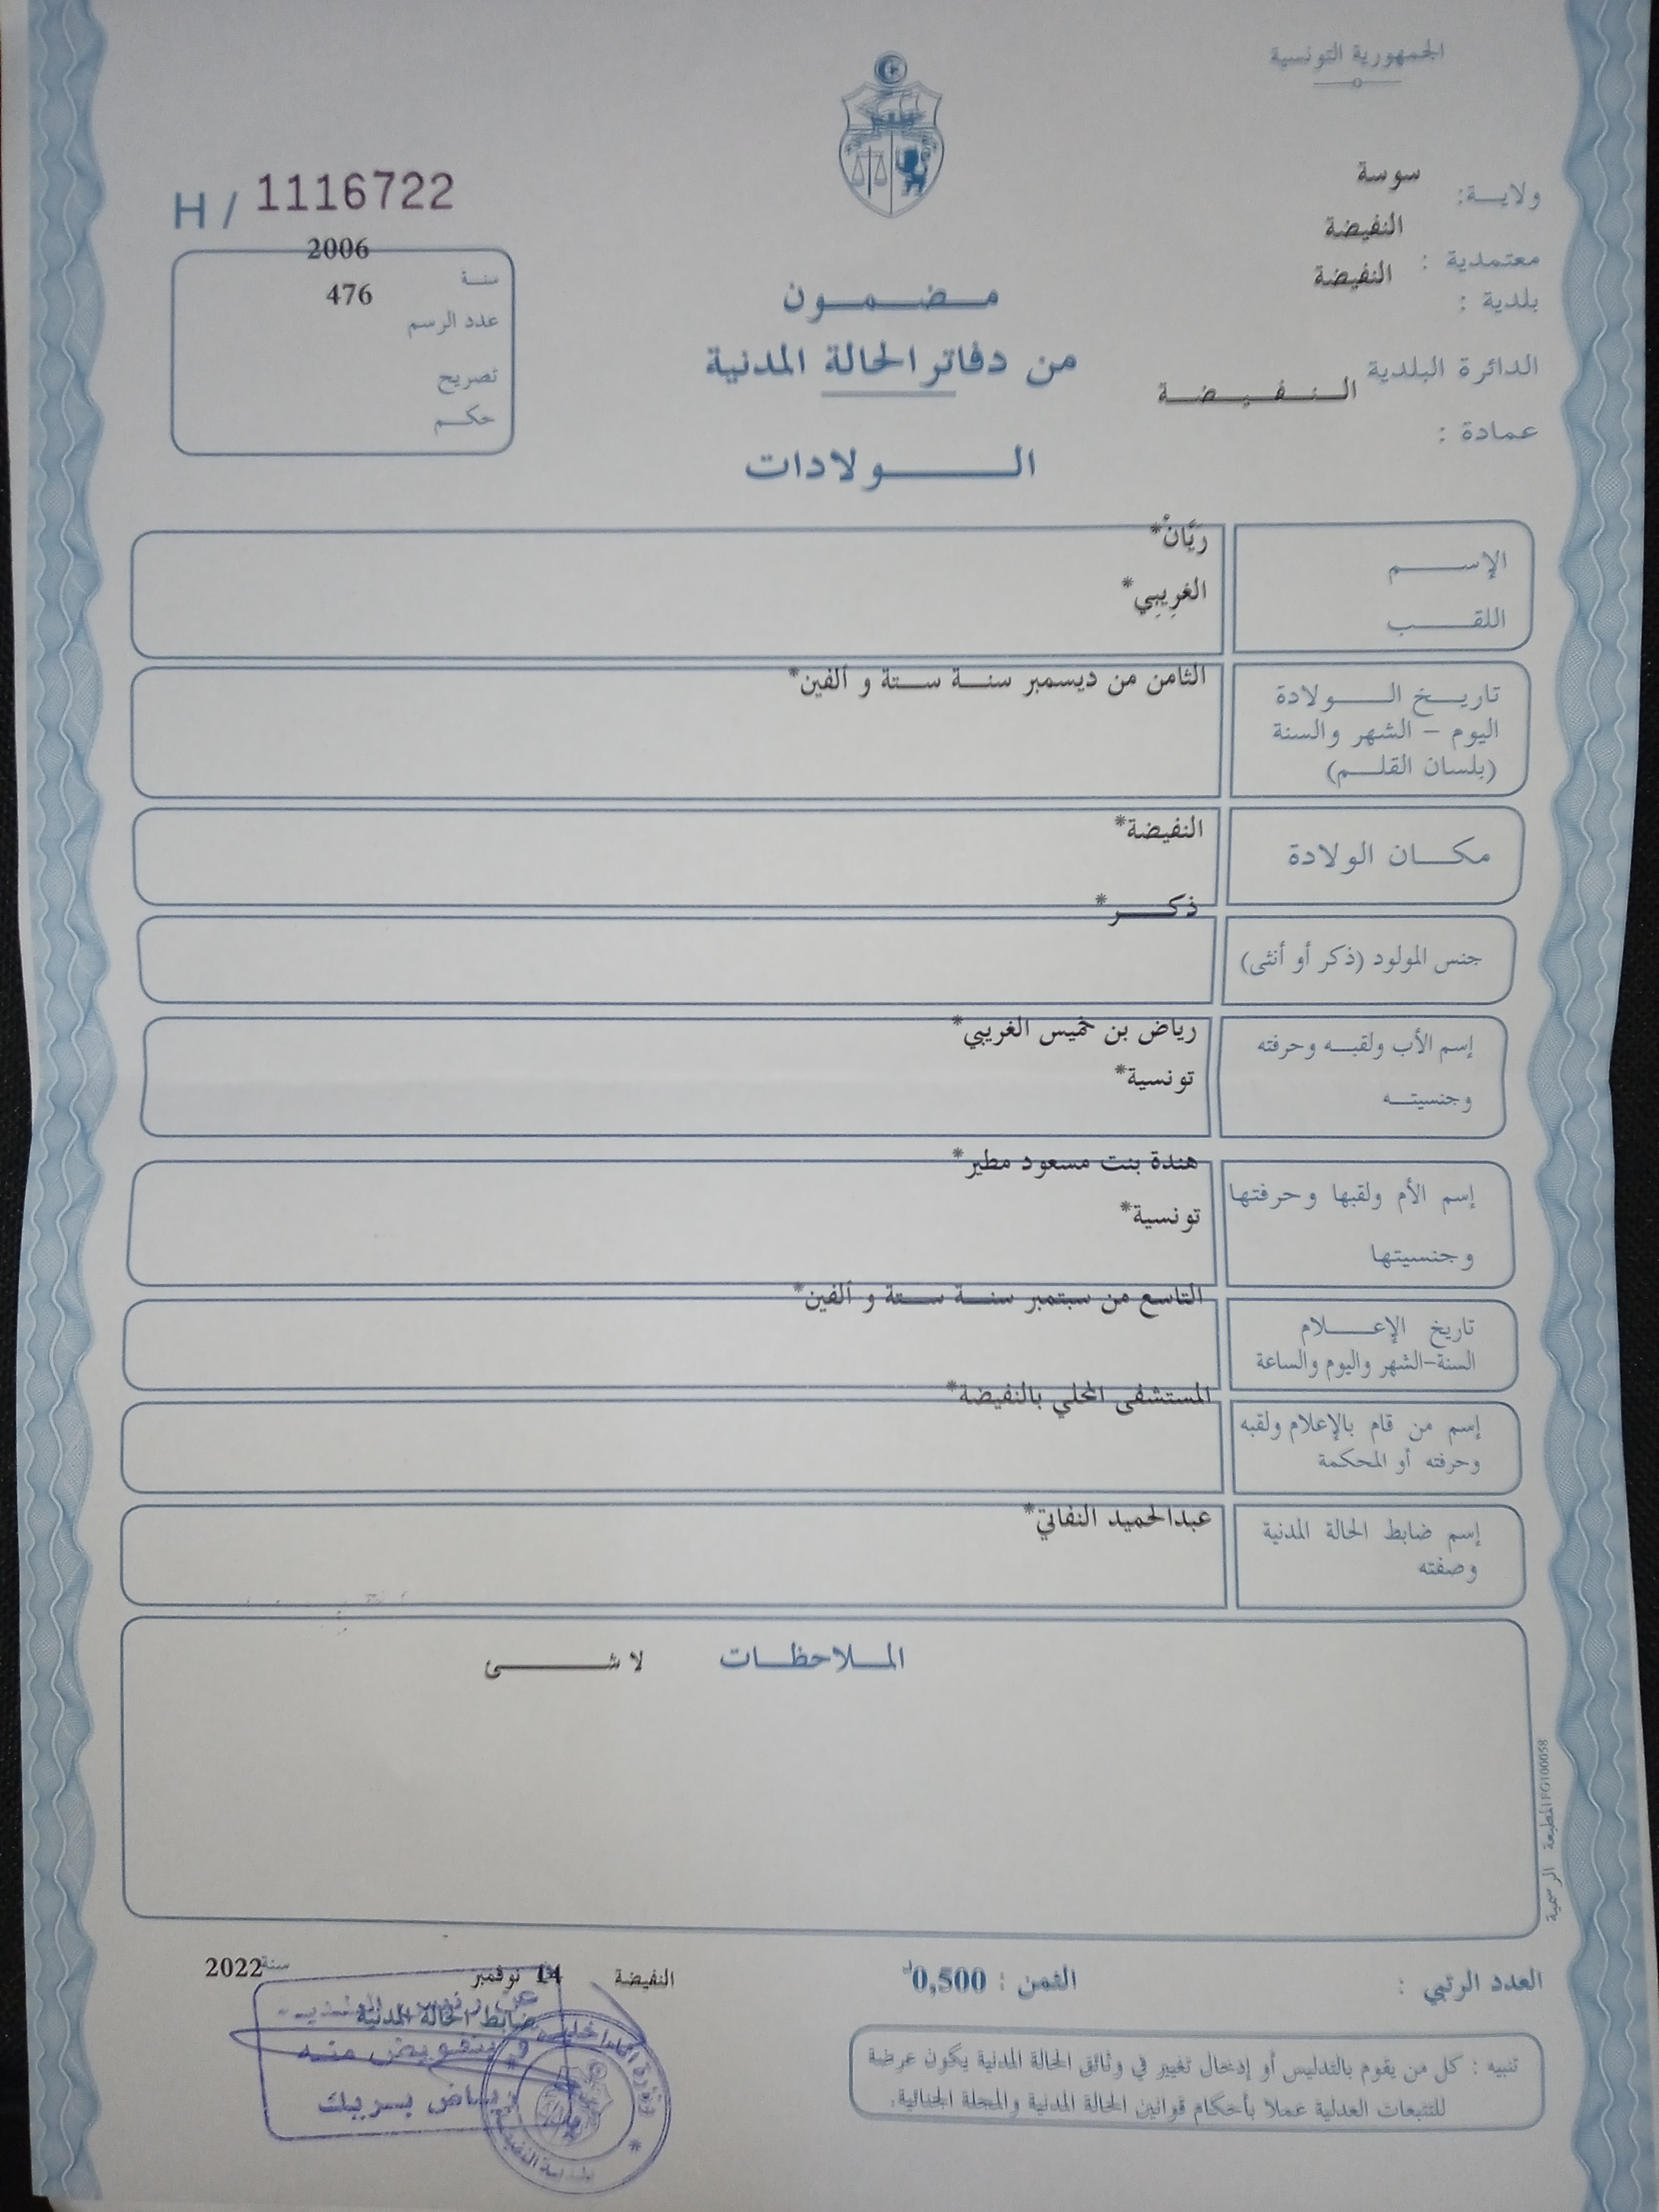 الجمهورية التونسية
ولايـــة: سوسة
معتمدية : النفيضة
بلدية : النفيضة
الدائرة البلدية النفيضة
عمادة :
H / 1116722
سنة 2006
عدد الرسم 476
تصريح
حكم
مضمون
من دفاتر الحالة المدنية
الولادات
الإسم ريَّانْ*
اللقب الغرِيبِي*
تاريخ الولادة الثامن من ديسمبر سنة ستة و ألفين*
اليوم – الشهر والسنة
(بلسان القلم)
مكان الولادة النفيضة*
جنس المولود (ذكر أو أنثى) ذكر*
إسم الأب ولقبه وحرفته رياض بن خميس الغريبي*
وجنسيته تونسية*
إسم الأم ولقبها وحرفتها هندة بنت مسعود مطير*
وجنسيتها تونسية*
تاريخ الإعلام التاسع من سبتمبر سنة ستة و ألفين*
السنة-الشهر واليوم والساعة
إسم من قام بالإعلام ولقبه المستشفى المحلي بالنفيضة*
وحرفته أو المحكمة
إسم ضابط الحالة المدنية عبدالحميد النفاتي*
وصفته
الملاحظات لا شئ
المطبعة الرسمية FG100058
العدد الرتبي :
الثمن : 0,500د
النفيضة 14 نوفمبر سنة 2022
ضابط الحالة المدنية
عن رئيس البلدية
و بتفويض منه
رياض بريك
وزارة الداخلية
بلدية النفيضة
تنبيه : كل من يقوم بالتدليس أو إدخال تغيير في وثائق الحالة المدنية يكون عرضة
للتتبعات العدلية عملا بأحكام قوانين الحالة المدنية والمجلة الجنائية.